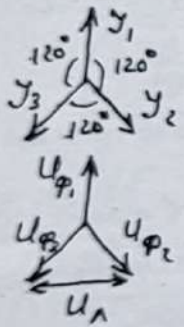 У₁
120° 120°
У₃ У₂
120°
Uф₁
Uф₃ Uф₂
Uл